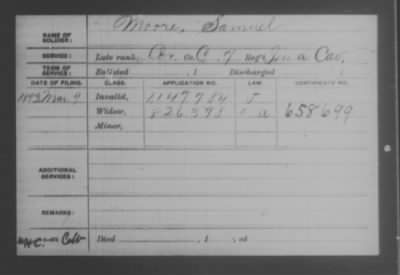 NAME OF SOLDIER: Moore, Samuel
SERVICE: Late rank, Co. C, 7 Reg't Cav.
TERM OF SERVICE: Enlisted , 1 Discharged , 1
DATE OF FILING. CLASS. APPLICATION NO. LAW. CERTIFICATE NO.
1893 Mar 9 Invalid, 1147784
Widow, 826398 658699
Minor,
ADDITIONAL SERVICES:
REMARKS:
Died , 1 , at